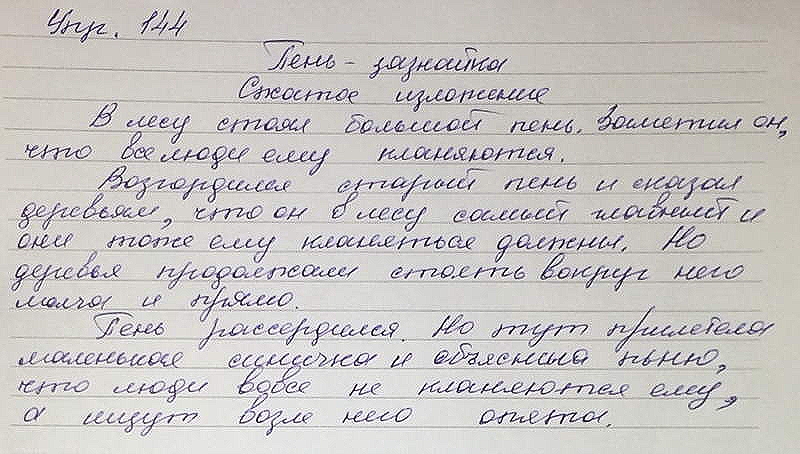 Упр. 144
Пень - зазнайка
Сжатое изложение
В лесу стоял большой пень. Заметил он,
что все люди ему кланяются.
Возгордился старый пень и сказал
деревьям, что он в лесу самый главный и
они тоже ему кланяться должны. Но
деревья продолжали стоять вокруг него
молча и прямо.
Пень рассердился. Но тут прилетела
маленькая синичка и объяснила пню,
что люди вовсе не кланяются ему,
а ищут возле него опята.